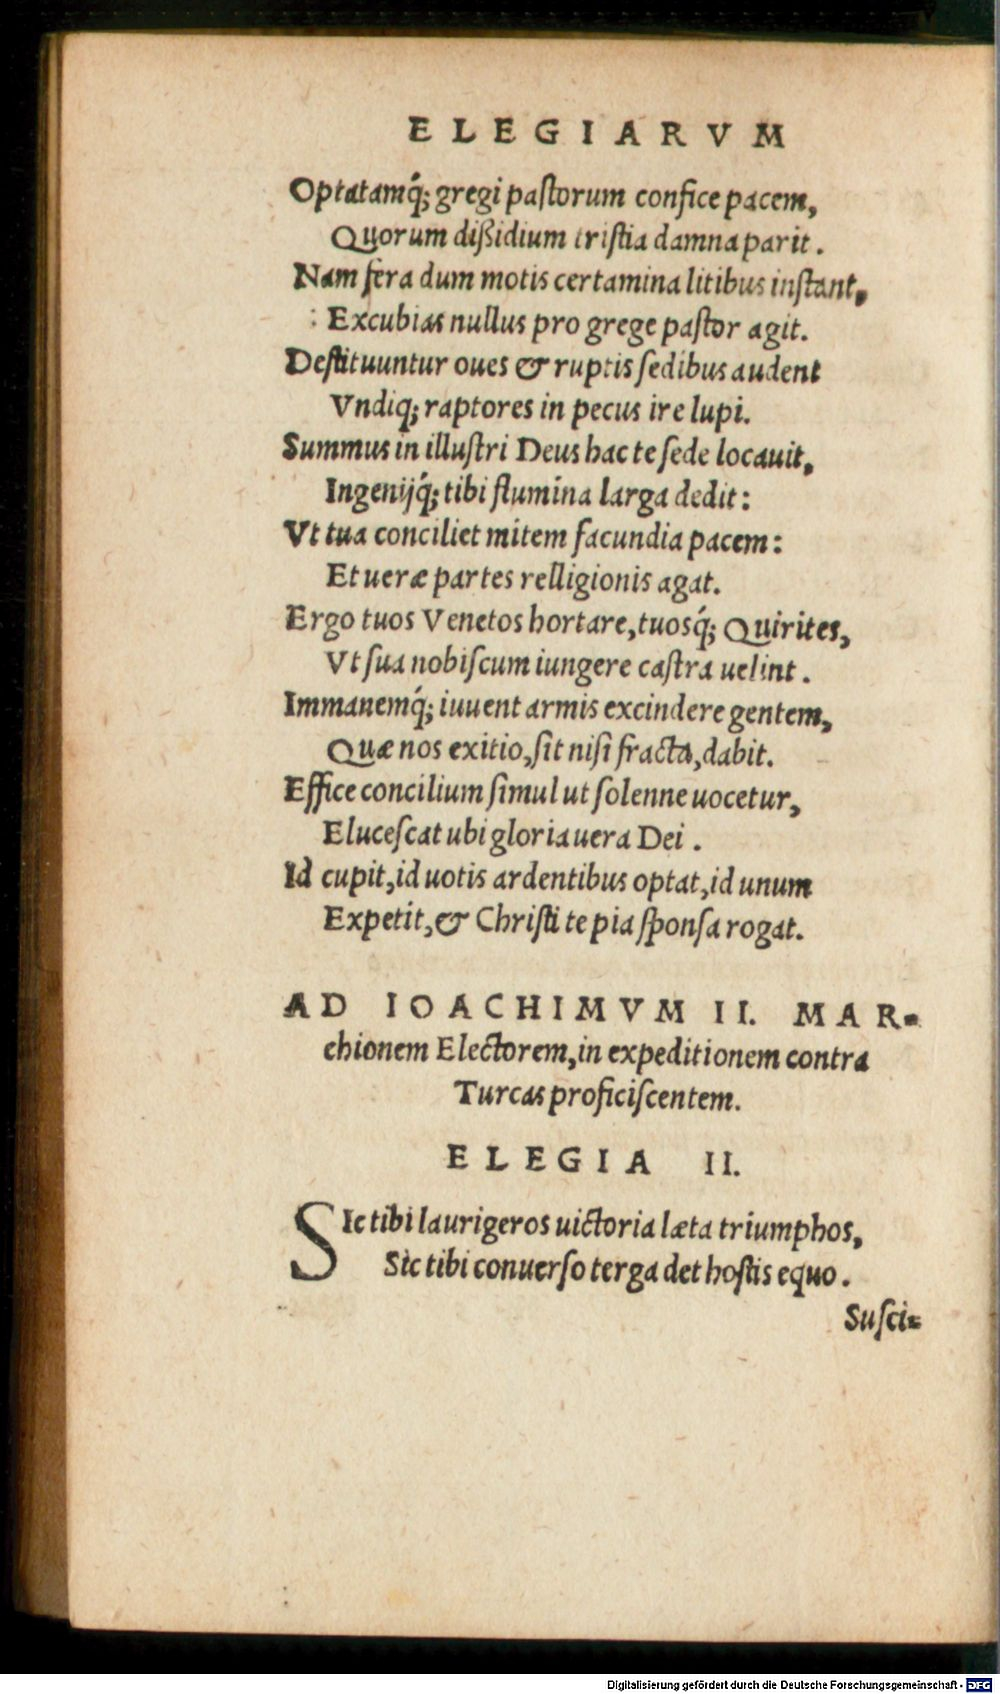 ELEGIARVM
Optatamq́; gregi paſtorum confice pacem,
Quorum dißidium triſtia damna parit.
Nam fera dum motis certamina litibus inſtant,
Excubias nullus pro grege paſtor agit.
Deſtituuntur oues & ruptis ſedibus audent
Vndiq; raptores in pecus ire lupi.
Summus in illuſtri Deus hac te ſede locauit,
Ingenijq́; tibi flumina larga dedit:
Vt tua conciliet mitem facundia pacem:
Et ueræ partes relligionis agat.
Ergo tuos Venetos hortare, tuosq́; Quirites,
Vt ſua nobiſcum iungere caſtra uelint.
Immanemq́; iuuent armis excindere gentem,
Quæ nos exitio, ſit niſi fracta, dabit.
Effice concilium ſimul ut ſolenne uocetur,
Eluceſcat ubi gloria uera Dei.
Id cupit, id uotis ardentibus optat, id unum
Expetit, & Chriſti te pia ſponſa rogat.
AD IOACHIMVM II. MAR-
chionem Electorem, in expeditionem contra
Turcas proficiſcentem.
ELEGIA II.
SIc tibi laurigeros uictoria læta triumphos,
Sic tibi conuerſo terga det hoſtis equo.
Suſci-
Digitalisierung gefördert durch die Deutsche Forschungsgemeinschaft - DFG